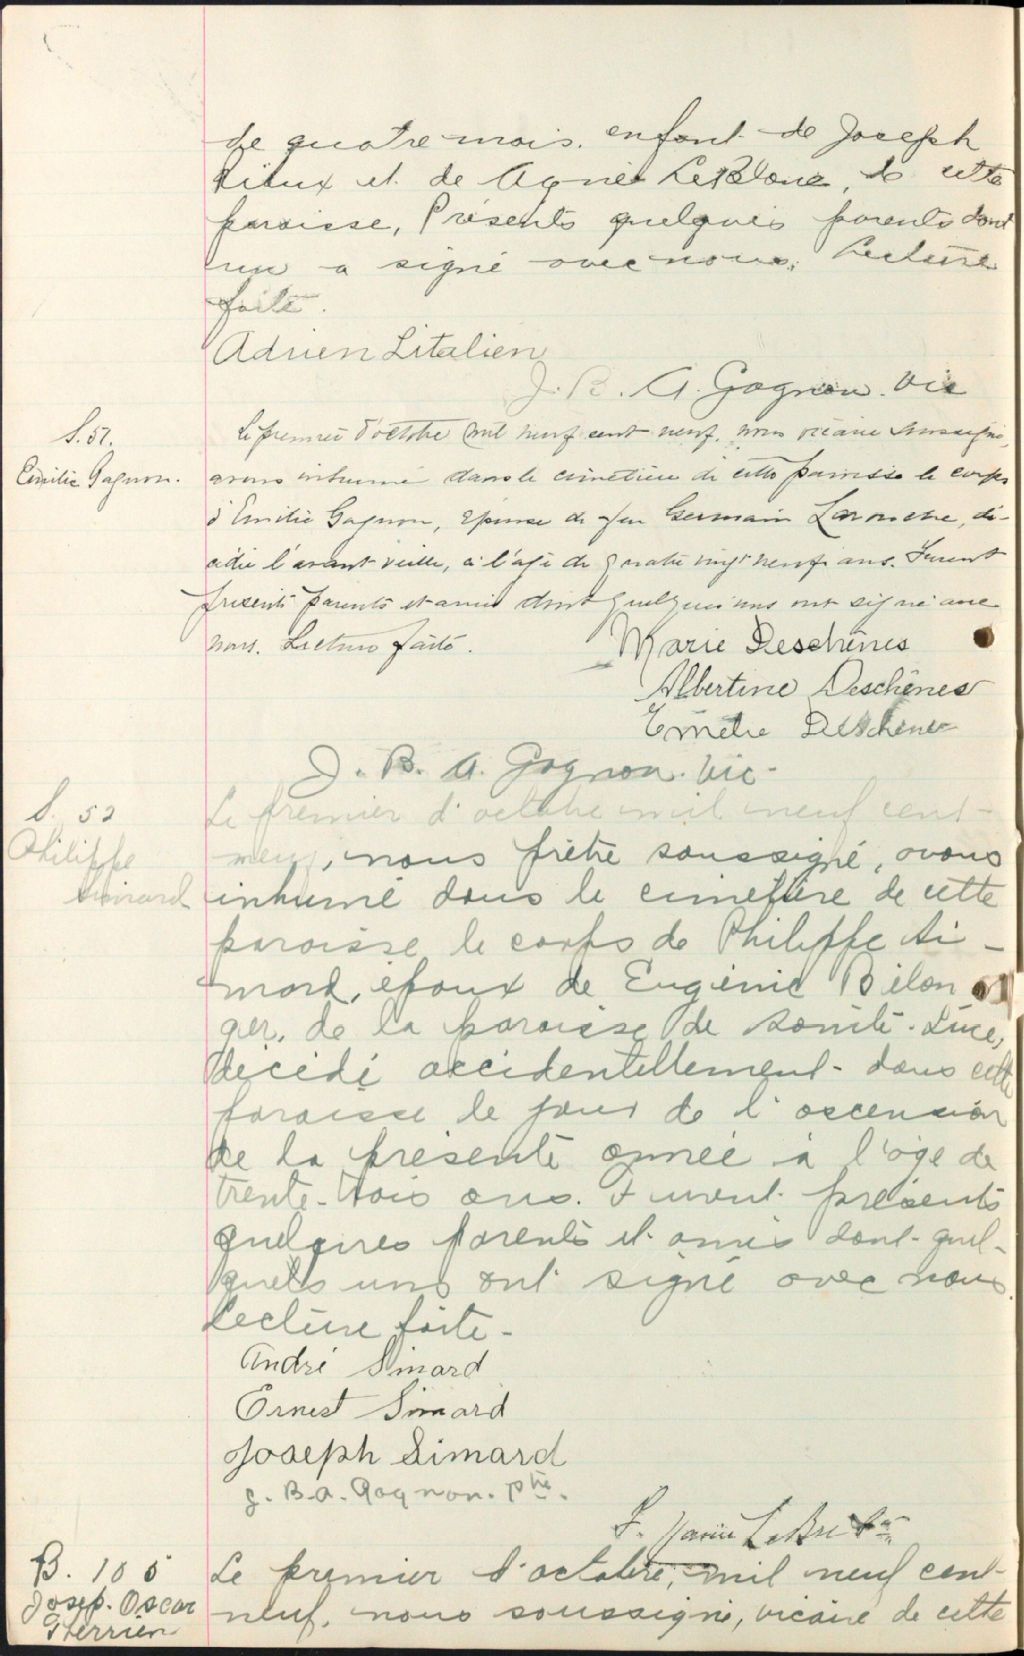 de quatre mois. enfant de Joseph
et de Agnès LeBlanc, de cette
paroisse, Présents quelques parents dont
un a signé avec nous. Lecture
faite.
Adrien Litalien
J. B. A. Gagnon. Vic
S. 51.
Emilie Gagnon.
Le premier d'octobre mil neuf cent neuf, nous vicaire soussigné,
avons inhumé dans le cimetière de cette paroisse le corps
d'Emilie Gagnon, épouse de feu Germain Larouche, dé-
cédée l'avant veille, à l'age de quatre vingt neuf ans. Furent
présents parents et amis dont quelques uns ont signé avec
nous. Lecture faite.
Marie Deschênes
Albertine Deschênes
Deschênes
J. B. A. Gagnon. Vic-
S. 52
Philippe
Simard
Le premier d'octobre mil neuf cent-
neuf, nous prêtre soussigné, avons
inhumé dans le cimetière de cette
paroisse le corps de Philippe Si-
mard, époux de Eugénie Bélan
ger, de la paroisse de Sainte-Luce,
décédé accidentellement- dans cette
paroisse le jour de l'ascension
de la présente année à l'âge de
trente-trois ans. Furent présents
quelques parents et amis dont quel-
ques uns ont signé avec nous.
Lecture faite-
André Simard
Ernest Simard
Joseph Simard
J. B. A. Gagnon. Ptre.
B. 105
Josep. Oscar
Therrien
Le premier d'octobre, mil neuf cent-
neuf, nous soussigné, vicaire de cette